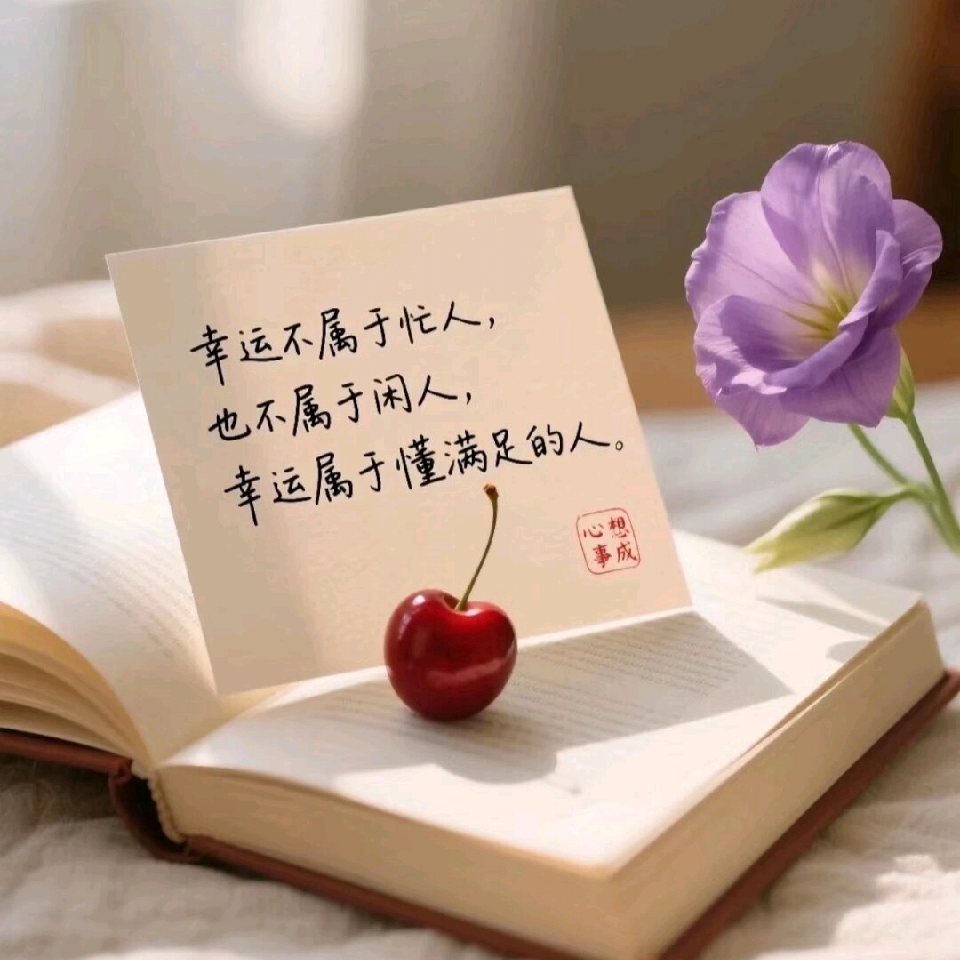 幸运不属于忙人，
也不属于闲人，
幸运属于懂满足的人。
心想
事成